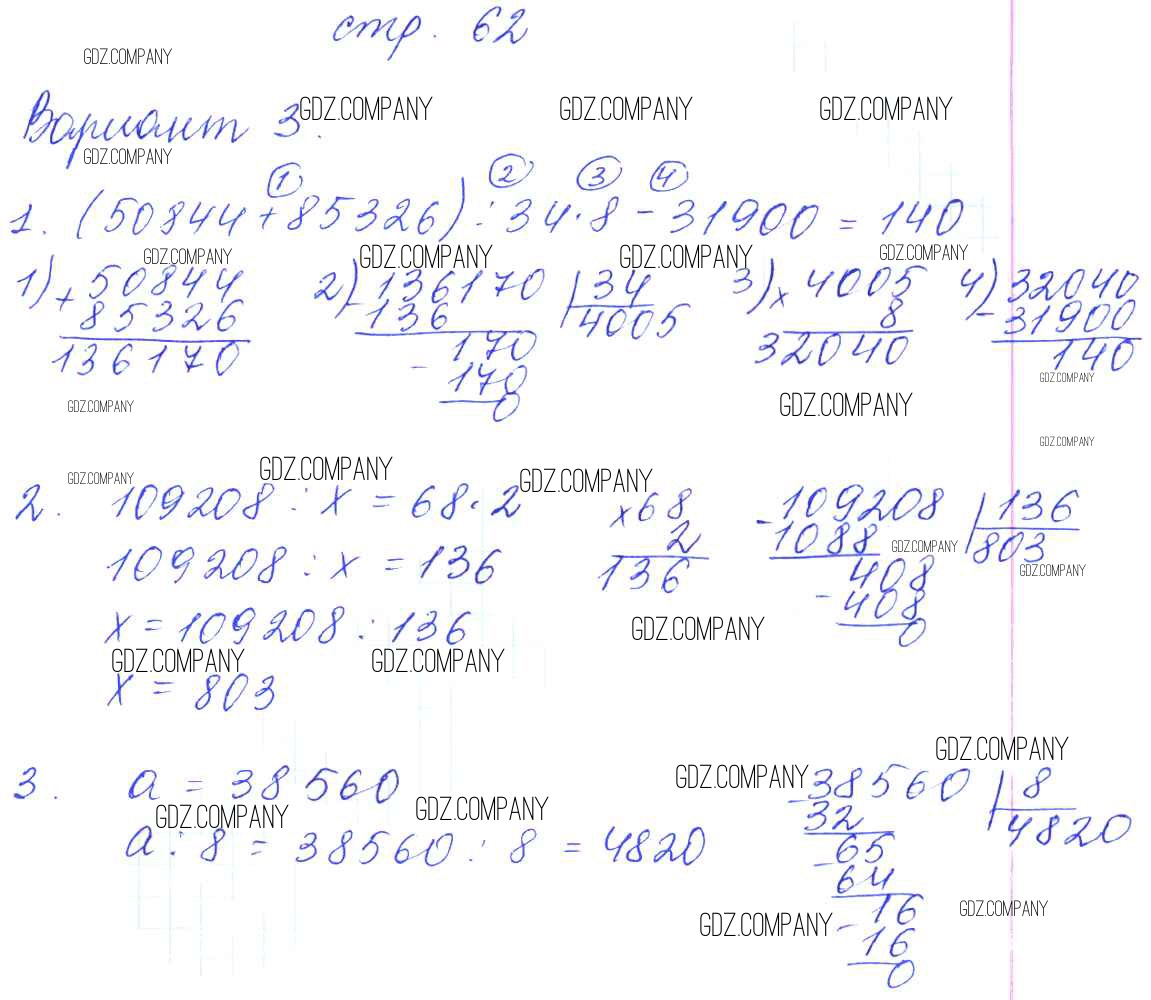 стр. 62
GDZ.COMPANY
Вариант 3.
GDZ.COMPANY GDZ.COMPANY GDZ.COMPANY
GDZ.COMPANY
1 2 3 4
1. (50844 + 85326) : 34 · 8 - 31900 = 140
GDZ.COMPANY GDZ.COMPANY GDZ.COMPANY GDZ.COMPANY
1) + 50844
85326
136170
2) - 136170 | 34
136 4005
170
- 170
0
3) × 4005
8
32040
4) - 32040
31900
140
GDZ.COMPANY
GDZ.COMPANY GDZ.COMPANY
GDZ.COMPANY
GDZ.COMPANY GDZ.COMPANY GDZ.COMPANY
2. 109208 : x = 68 · 2
109208 : x = 136
x = 109208 : 136
x = 803
× 68
2
136
- 109208 | 136
1088 803
408
- 408
0
GDZ.COMPANY
GDZ.COMPANY
GDZ.COMPANY
GDZ.COMPANY GDZ.COMPANY
3. a = 38560
a : 8 = 38560 : 8 = 4820
GDZ.COMPANY GDZ.COMPANY
GDZ.COMPANY
GDZ.COMPANY
- 38560 | 8
32 4820
- 65
64
- 16
16
0
GDZ.COMPANY GDZ.COMPANY